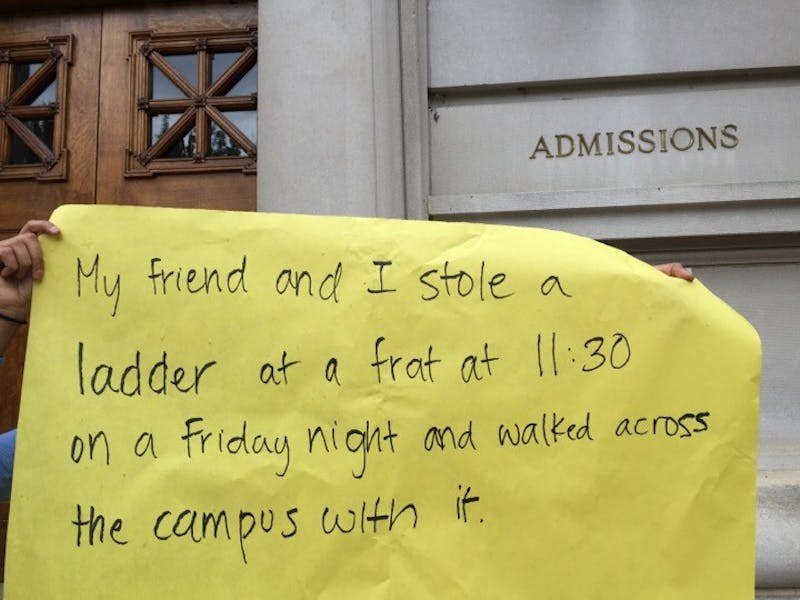 ADMISSIONS
My friend and I stole a
ladder at a frat at 11:30
on a Friday night and walked across
the campus with it.